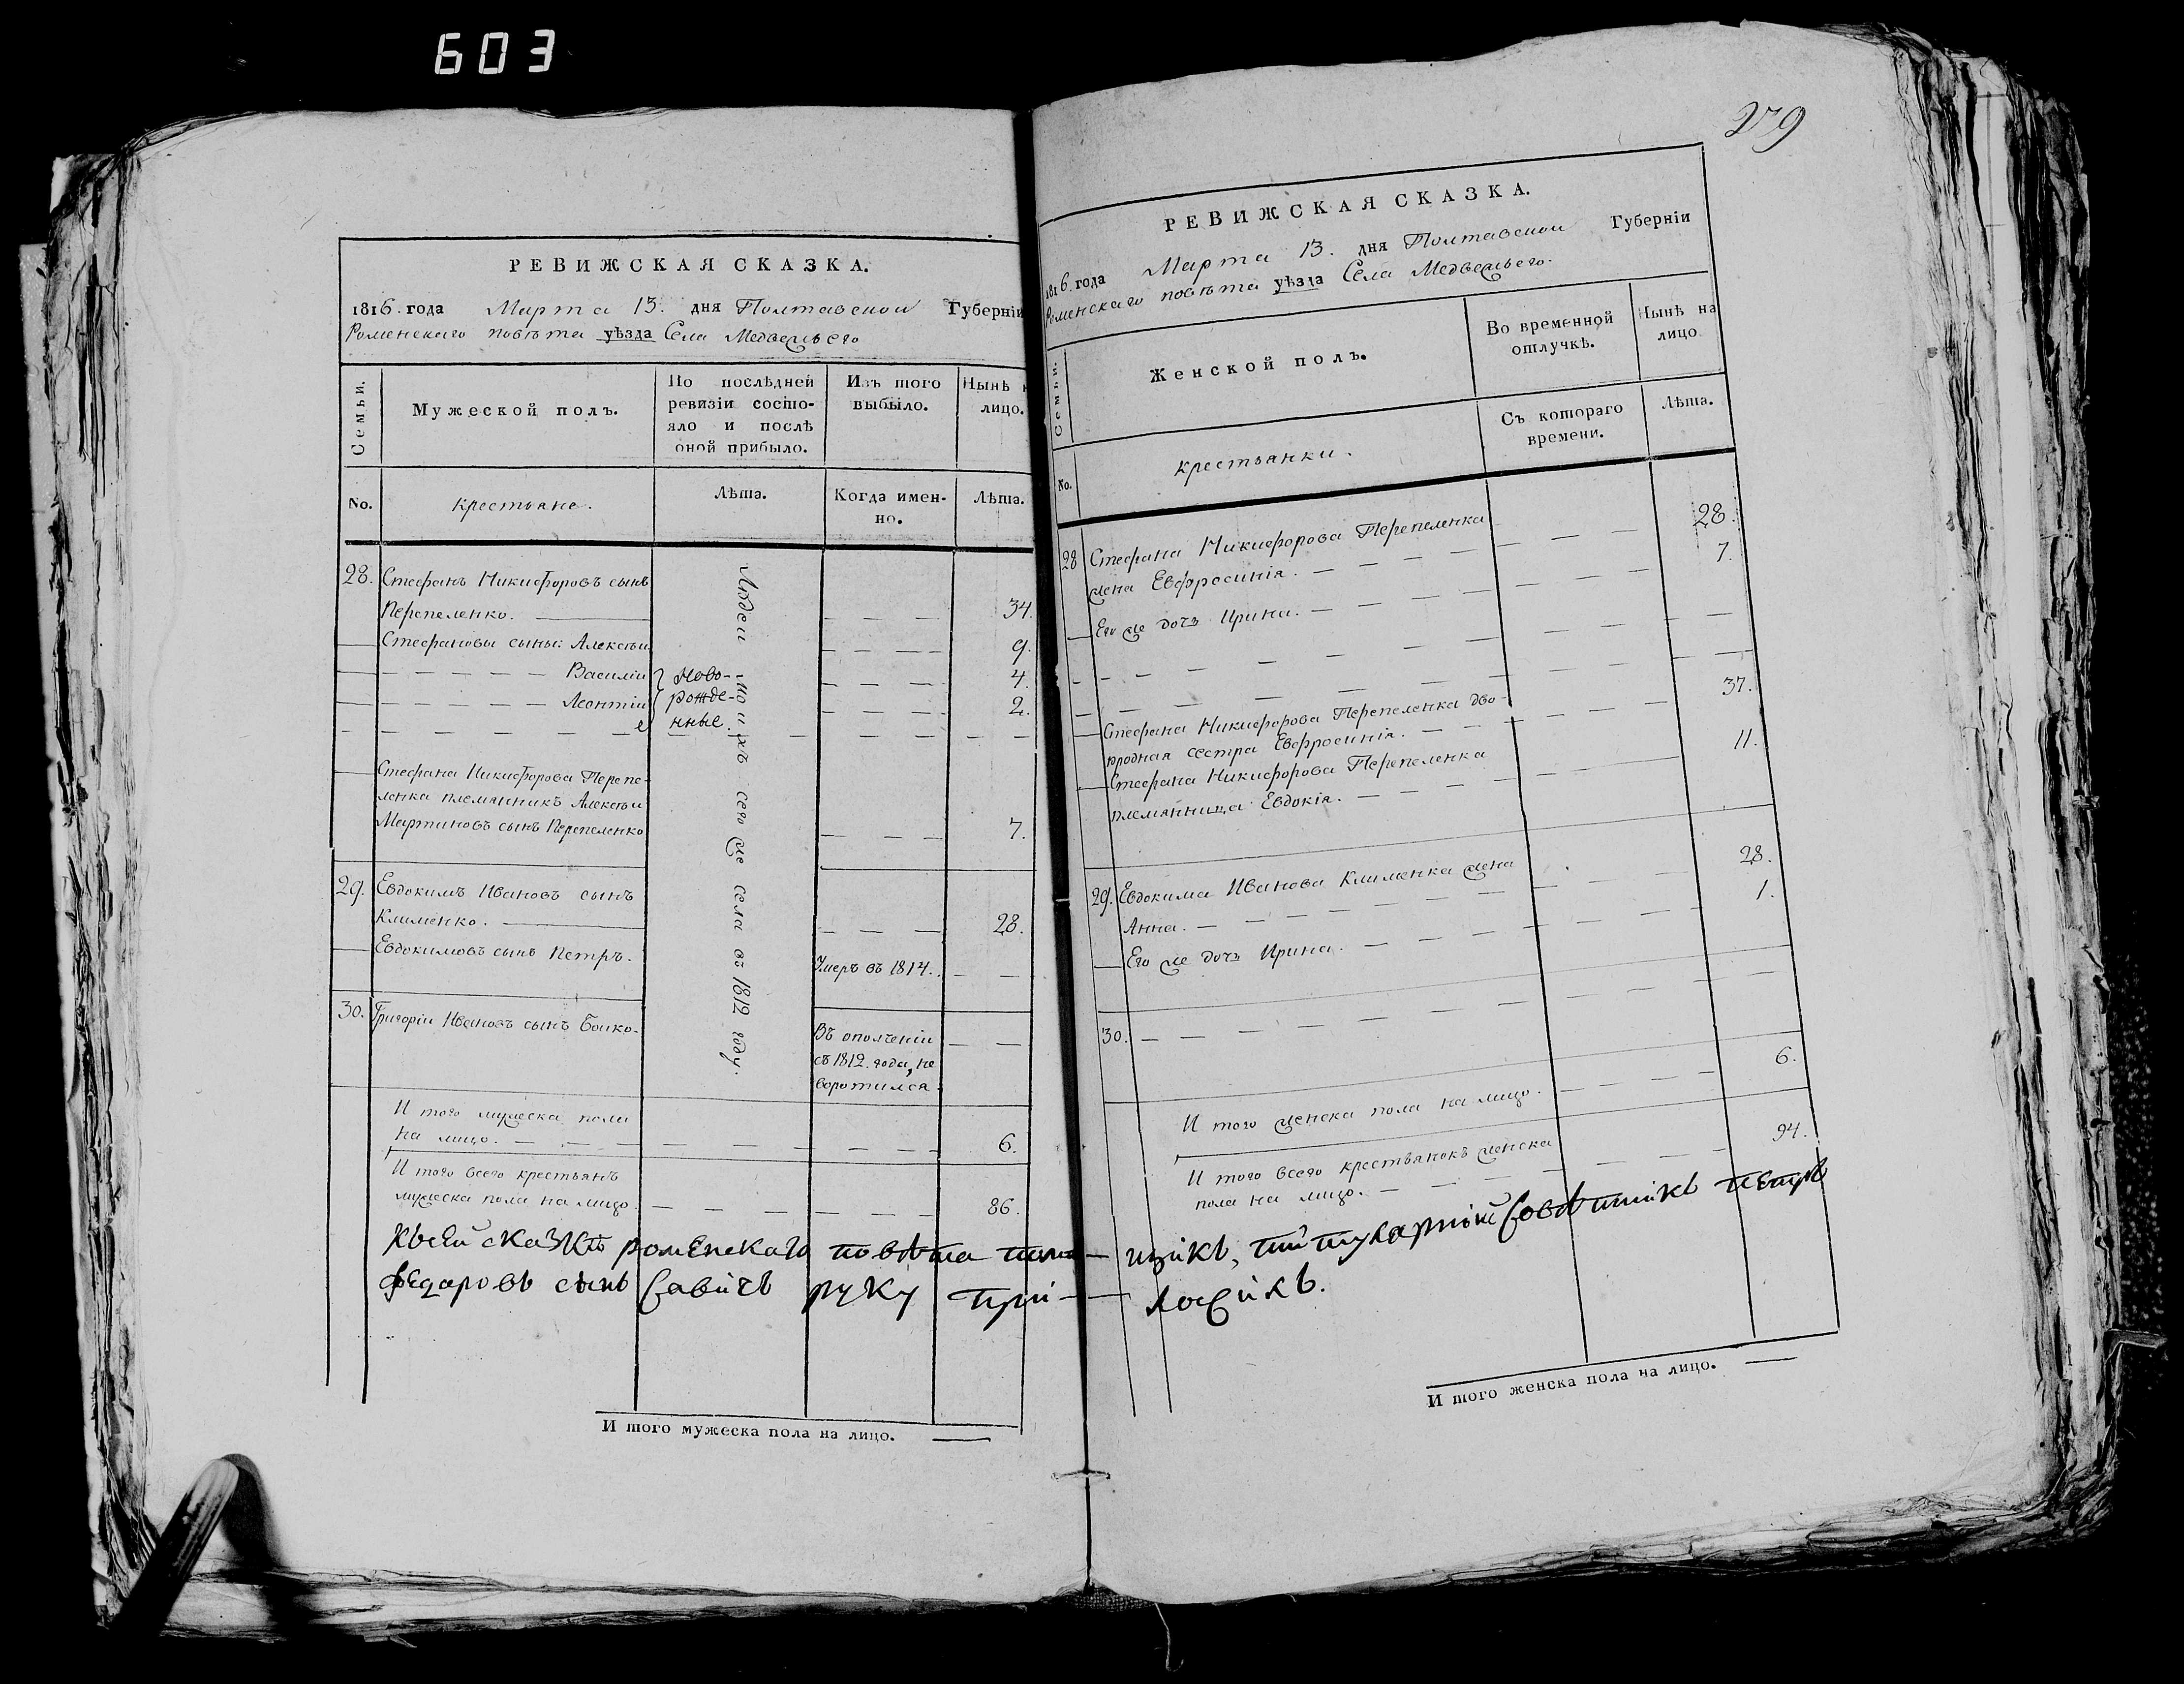 603
РЕВИЖСКАЯ СКАЗКА.
1816. года Марта 13. дня Полтавской Губерніи
Роменскаго повѣта уѣзда Села Медвежьего
Семьи.
Мужеской полъ.
По послѣдней
ревизіи состо-
яло и послѣ
оной прибыло.
Изъ того
выбыло.
Нынѣ
лицо.
No.
крестьяне.
Лѣта.
Когда имен-
но.
Лѣта.
Людей моихъ сего же села въ 1812 году.
28. Стефанъ Никифоровъ сынъ
Перепеленко. 34.
Стефановы сыны: Алексѣи 9.
Василіи 4.
Леонтіи 2.
ново-
рожде-
нные.
Стефана Никифорова Перепе-
ленка племянникъ Алексѣи
Мартиновъ сынъ Перепеленко 7.
29. Евдокимъ Ивановъ сынъ
Клименко. 28.
Евдокимовъ сынъ Петръ. Умеръ въ 1814.
30. Григоріи Ивановъ сынъ Боико. Въ ополченіи
съ 1812. года, не
воротился.
И того мужеска пола
на лицо. 6.
И того всего крестьянъ
мужеска пола на лицо. 86.
Ксей сказкѣ роменскаго повѣта
федаровъ сынъ Савичъ руку при-
И того мужеска пола на лицо.
279
РЕВИЖСКАЯ СКАЗКА.
1816. года Марта 13. дня Полтавской Губерніи
Роменскаго повѣта уѣзда Села Медвежьего.
Семьи.
Женской полъ.
Во временной
отлучкѣ.
Нынѣ на
лицо
Съ котораго
времени.
Лѣта.
No.
крестьянки.
28 Стефана Никифорова Перепеленка
жена Евфросинія. 28.
Его же дочь Ирина. 7.
Стефана Никифорова Перепеленка дво-
юродная сестра Евфросинія. 37.
Стефана Никифорова Перепеленка
племянница Евдокія. 11.
29. Евдокима Иванова Клименка жена
Анна. 28.
Его же дочь Ирина. 1.
30.
И того женска пола на лицо. 6.
И того всего крестьянокъ женска
пола на лицо. 94.
щікъ, титулярній Совѣтнікъ петръ
ложілъ.
И того женска пола на лицо.